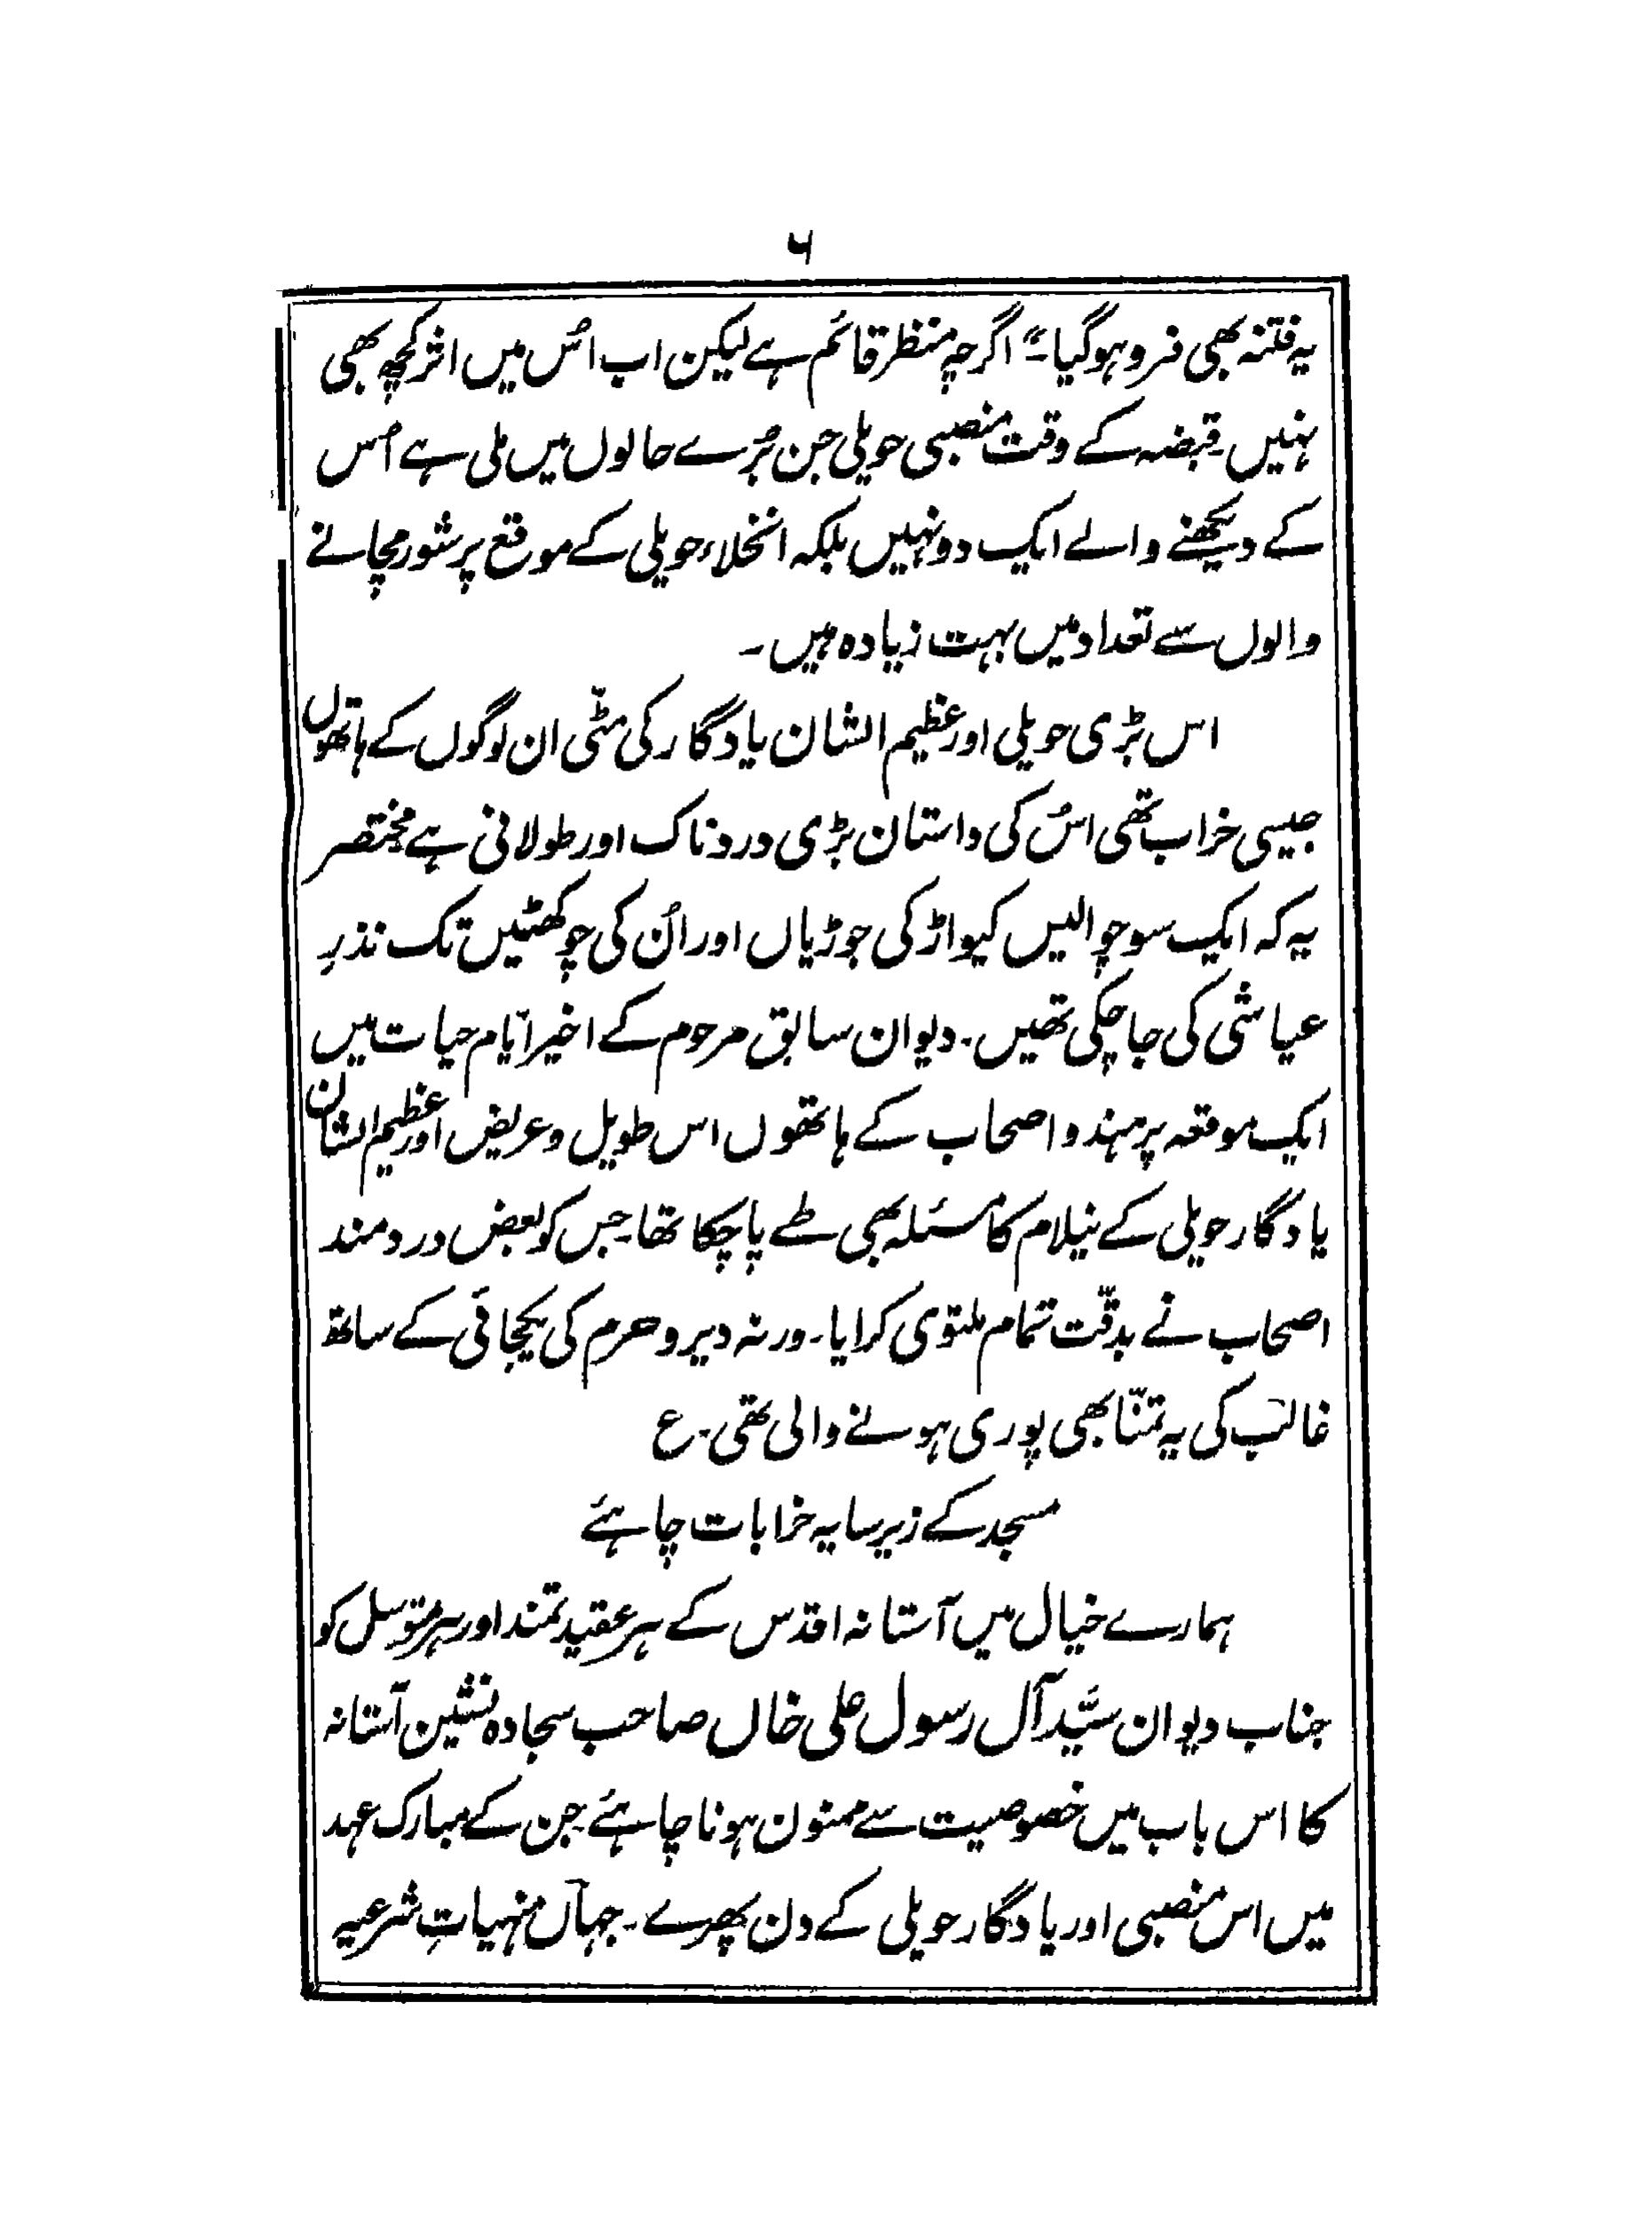 ۶
یہ فتنہ بھی فرو ہوگیا۔" اگرچہ منظر قائم ہے لیکن اب اُس میں اثر کچھ بھی
نہیں۔ قبضہ کے وقت منصبی حویلی جن بُرے حالوں میں ملی ہے اُس
کے دیکھنے والے ایک دو نہیں بلکہ انخلاء حویلی کے موقع پر شور مچانے
والوں سے تعداد میں بہت زیادہ ہیں۔
اس بڑی حویلی اور عظیم الشان یادگار کی مٹّی ان لوگوں کے ہاتھوں
جیسی خراب تھی اُس کی داستان بڑی دردناک اور طولانی ہے مختصر
یہ کہ ایک سو چوالیس کیواڑ کی جوڑیاں اور اُن کی چوکھٹیں تک نذرِ
عیاشی کی جاچکی تھیں۔ دیوان سابق مرحوم کے اخیر ایّام حیات میں
ایک موقعہ پر ہندو اصحاب کے ہاتھوں اس طویل و عریض اور عظیم الشان
یادگار حویلی کے نیلام کا مسئلہ بھی طے پاچکا تھا۔ جس کو بعض دردمند
اصحاب نے بدقّت تمام ملتوی کرایا۔ ورنہ دیر و حرم کی یکجائی کے ساتھ
غالب کی یہ تمنّا بھی پوری ہونے والی تھی۔ ع
مسجد کے زیر سایہ خرابات چاہئے
ہمارے خیال میں آستانہ اقدس کے ہر عقیدتمند اور ہر متوسل کو
جناب دیوان سیّد آل رسول علی خاں صاحب سجادہ نشین آستانہ
کا اس باب میں خصوصیت سے ممنون ہونا چاہئے جن کے مبارک عہد
میں اس منصبی اور یادگار حویلی کے دن پھرے۔ جہاں منہیاتِ شرعیہ